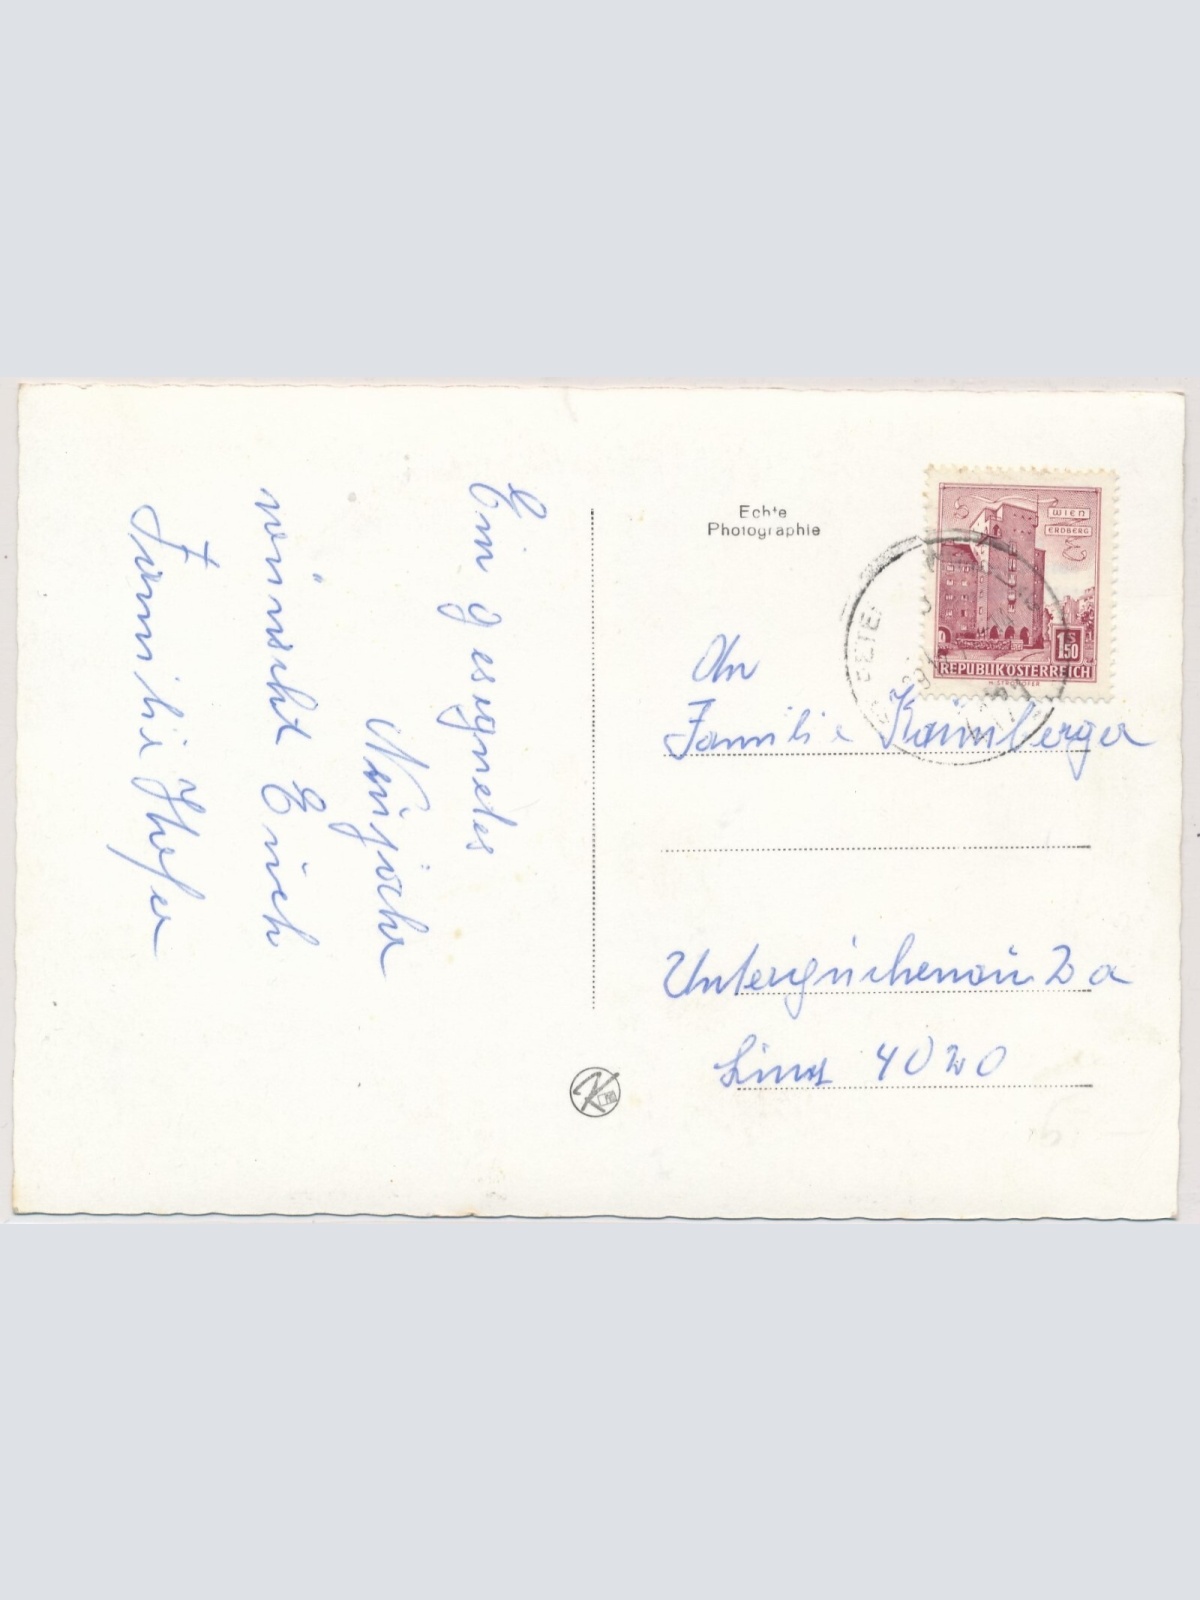 Ein gesegnetes
Neujahr
wünscht Euch
Familie Hofer
Echte
Photographie
WIEN
ERDBERG
1 S 50
REPUBLIK ÖSTERREICH
An
Familie
Linz 4020